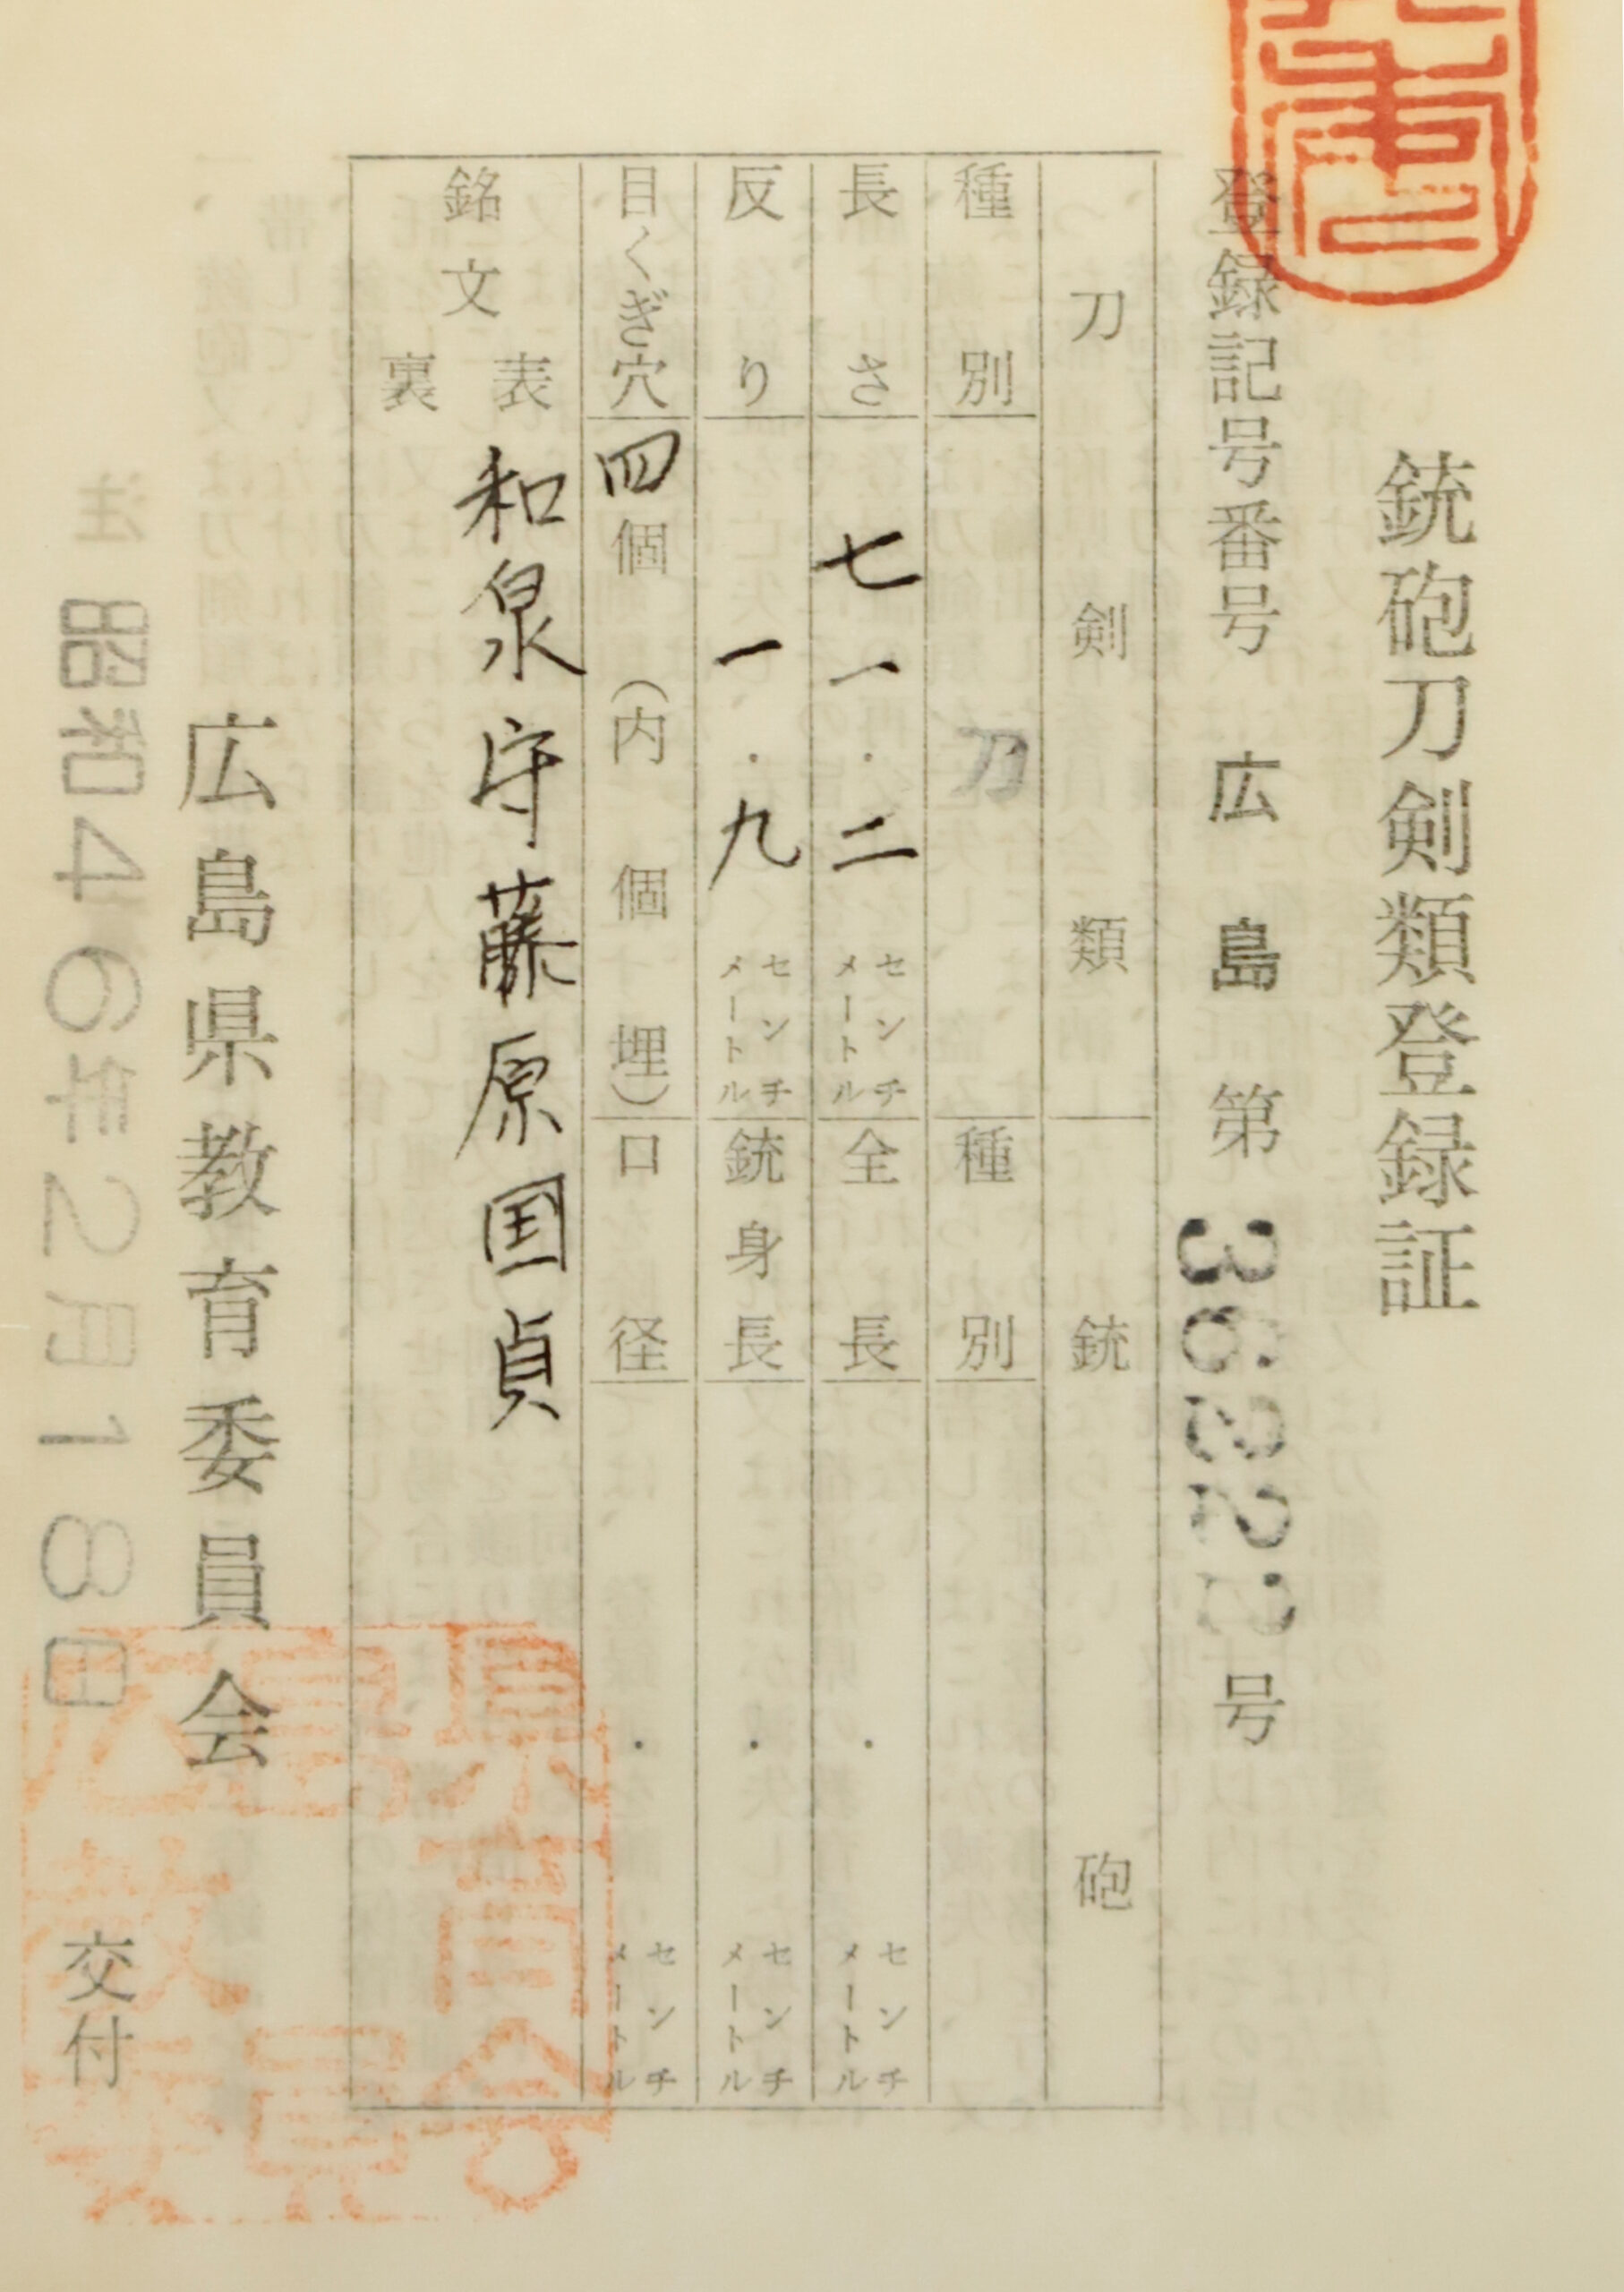 銃砲刀剣類登録証
登録記号番号 広島 第 36822 号
刀剣類
銃砲
種別 刀
種別
長さ 七一.二 センチメートル
全長 . センチメートル
反り 一.九 センチメートル
銃身長 . センチメートル
目くぎ穴 四個(内 個埋)
口径 . センチメートル
銘文
表 和泉守藤原国貞
裏
広島県教育委員会
昭和46年2月18日 交付